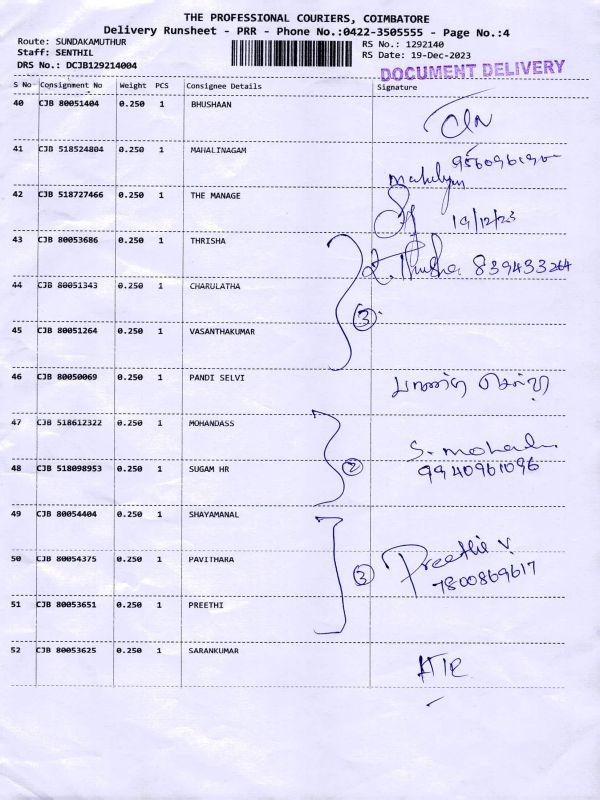 THE PROFESSIONAL COURIERS, COIMBATORE
Delivery Runsheet - PRR - Phone No.:0422-3505555 - Page No.:4
Route: SUNDAKAMUTHUR RS No.: 1292140
Staff: SENTHIL RS Date: 19-Dec-2023
DRS No.: DCJB129214004
DOCUMENT DELIVERY
S No Consignment No Weight PCS Consignee Details Signature
40 CJB 80051404 0.250 1 BHUSHAAN
41 CJB 518524804 0.250 1 MAHALINAGAM
42 CJB 518727466 0.250 1 THE MANAGE
19/12/23
43 CJB 80053686 0.250 1 THRISHA
Thrisha 839433264
44 CJB 80051343 0.250 1 CHARULATHA
3
45 CJB 80051264 0.250 1 VASANTHAKUMAR
46 CJB 80050069 0.250 1 PANDI SELVI
47 CJB 518612322 0.250 1 MOHANDASS
S. Mohan
48 CJB 518098953 0.250 1 SUGAM HR
2 9940961096
49 CJB 80054404 0.250 1 SHAYAMANAL
50 CJB 80054375 0.250 1 PAVITHARA
Preethi V.
3 7800869617
51 CJB 80053651 0.250 1 PREETHI
52 CJB 80053625 0.250 1 SARANKUMAR